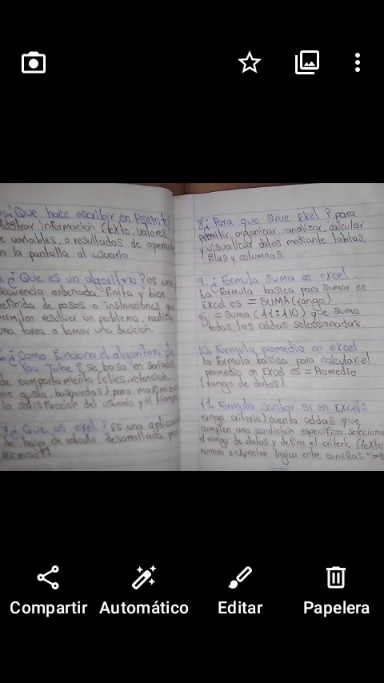 ¿Que hace escribir en PSeInt?
Mostrar información (texto, valores
de variables, o resultados de operacio
en la pantalla al usuario.
¿Que es un algoritmo? es una
secuencia ordenada, finita y bien
definida de pasos o instrucciones que
permiten resolver un problema, realizar
una tarea o tomar una decisión.
¿Como funciona el algoritmo de
You Tube? se basa en señales
de comportamiento (clics, retención,
me gusta, búsquedas) para maximizar
la satisfacción del usuario y el tiempo
¿Que es exel? Es una aplicac
de hoja de cálculo desarrollada por
Microsoft
8. ¿Para que sirve Exel? para
permitir, organizar, analizar, calcular
y visualizar datos mediante tablas,
filas y columnas.
9. ¿Formula suma en excel
La formula basica para sumar en
Excel es = SUMA(rango)
ej = Suma (A1:A10) que suma
todas las celdas seleccionadas
10. Formula promedio en excel
la formula basica para calcular el
promedio en Excel es = Promedio
(rango de datos).
11. Formula contar. si en Excel:
rango criterio) cuenta celdas que
cumplen una condición especifica, selecciona
el rango de datos y define el criterio (texto
numero o expresion logica entre comillas
Compartir Automático Editar Papelera